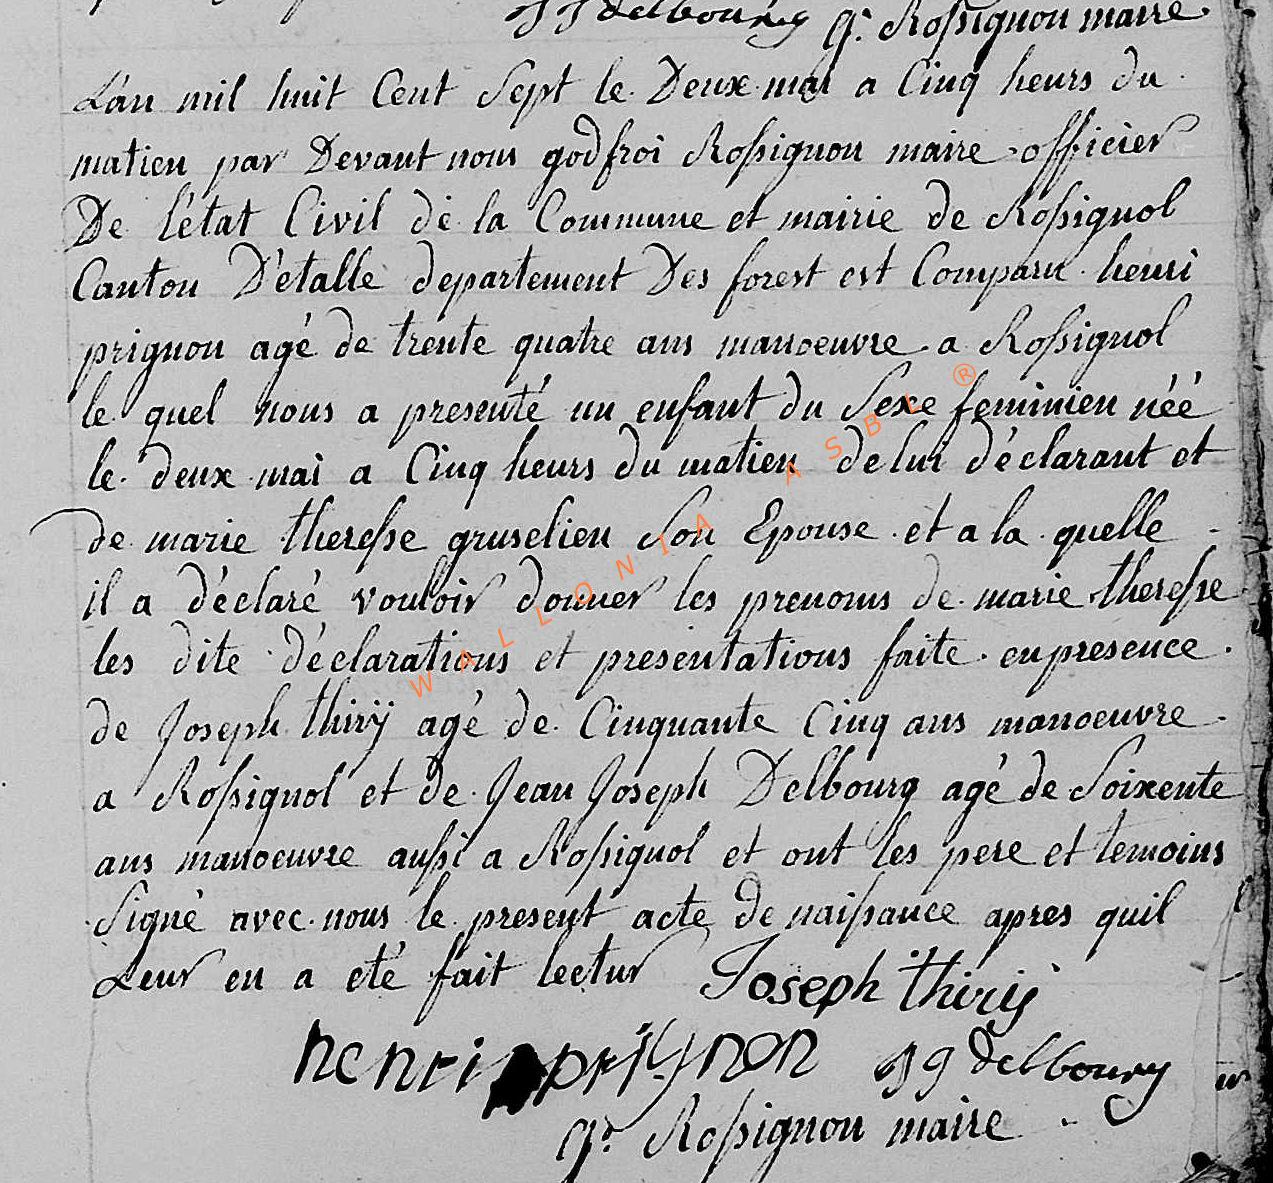 JJ delbourg g. Rossignon maire.
L'an mil huit Cent Sept le Deux mai a Cinq heurs du
matien par Devant nous godfroi Rossignon maire officier
De l'état Civil de la Commune et mairie de Rossignol
Canton D'étalle departement Des forest est Comparu henri
prignon agé de trente quatre ans manoeuvre a Rossignol
le quel nous a presenté un enfant du Sexe feminien néé
le deux mai a Cinq heurs du matien de lui déclarant et
de marie theresse gruselien Son Epouse et a la quelle
il a déclaré vouloir donner les prenoms de marie theresse
les dite déclarations et presentations faite en presence
de Joseph thirÿ agé de Cinquante Cinq ans manoeuvre
a Rossignol et de Jean Joseph Delbourg agé de Soixente
ans manoeuvre aussi a Rossignol et ont les pere et temoins
Signé avec nous le present acte de naissance apres quil
Leur en a eté fait lectur Joseph thirÿ
henri prignon JJ delbourg
g. Rossignon maire
WALLONIA ASBL ®